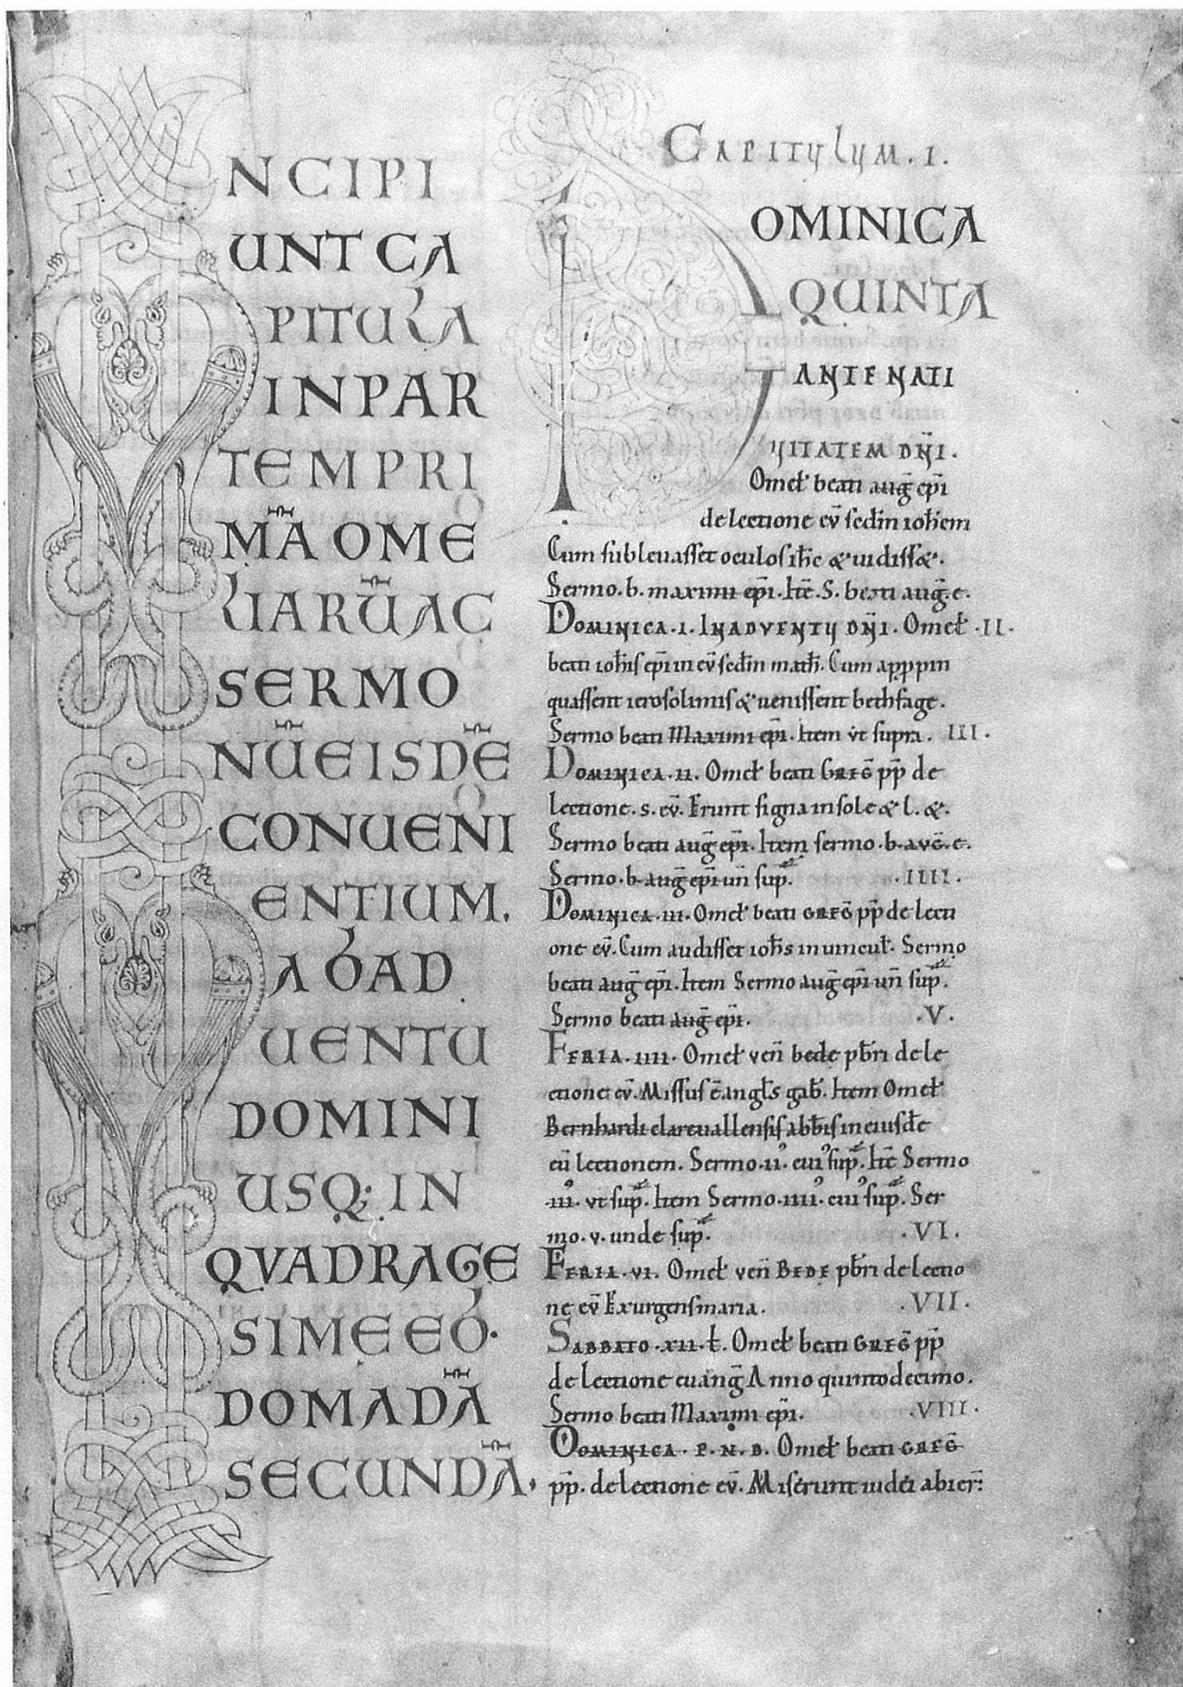 INCIPI
UNT CA
PITULA
IN PAR
TEM PRI
MĀ OME
LIARŪ AC
SERMO
NŪ EISDĒ
CONUENI
ENTIUM.
A
DOMINI
USQ; IN
QVADRAGE
SIME
DOMADĀ
SECUNDĀ.
CAPITULUM. I.
DOMINICA
QUINTA
ANTE NATI
VITATEM DN̄I.
Omeł beati auḡ ep̄i
de lectione ev̄ sedm̄ ioħem
Cum sublevasset oculos ih̄c & vidiss&.
Sermo. b. maximi ep̄i. Itē. S. beati auḡ. e.
DOMINICA. I. IN ADVENTU DN̄I. Omeł .II.
beati ioħis ep̄i in ev̄ sedm̄ math̄. Cum appropin
quassent ierosolimis & venissent bethfage.
Sermo beati Maximi ep̄i. Item vt supra. III.
DOMINICA. II. Omeł beati GREḠ pp̄ de
lectione. s. ev̄. Erunt signa in sole & l. &.
Sermo beati auḡ ep̄i. Item sermo. b. avḠ. e.
Sermo. b. auḡ ep̄i un̄ sup̄. .IIII.
DOMINICA. III. Omeł beati GREḠ pp̄ de lecti
one ev̄. Cum audisset ioħs in vincul̄. Sermo
beati auḡ ep̄i. Item Sermo auḡ ep̄i un̄ sup̄.
Sermo beati auḡ ep̄i. .V.
FERIA. IIII. Omeł ven̄ bede pb̄ri de le
ctione ev̄. Missus ē angl̄s gab̄. Item Omeł
Bernhardi clarevallensis abb̄is in eiusdē
ev̄ lectionem. Sermo. II. cui sup̄. Itē Sermo
.III. vt sup̄. Item Sermo. IIII. cui sup̄. Ser
mo. v. unde sup̄. .VI.
FERIA. VI. Omeł ven̄ BEDE pb̄ri de lectio
ne ev̄ Exurgens maria. .VII.
SABBATO. XII. ł. Omeł beati GREḠ pp̄
de lectione euanḡ Anno quintodecimo.
Sermo beati Maximi ep̄i. .VIII.
DOMINICA. P. N. D. Omeł beati GREḠ
pp̄. de lectione ev̄. Miserunt iudei ab